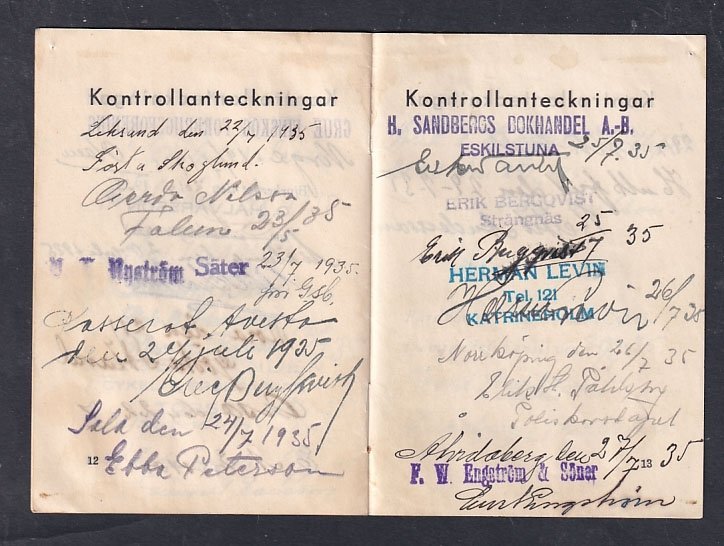 Kontrollanteckningar
Leksand den 22/7 1935
Gösta Skoglund.
Gerda Nilson
Falun 23/5 35
Engström Säter 23/7 1935.
för Gsb.
Passerat Avesta
den 24 juli 1935
Sala den 24/7 1935
Ebba Peterson
12
Kontrollanteckningar
H. SANDBERGS BOKHANDEL A.-B.
ESKILSTUNA 25/7 35
ERIK BERGQVIST
Strängnäs
25/7 35
Erik Bergqvist
HERMAN LEVIN
Tel. 121
KATRINEHOLM
Herman Levin 26/7 35
Norrköping den 26/7 35
Poliskonstapel
Åtvidaberg den 27/7 35
F. W. Engström & Söner
Engström
13